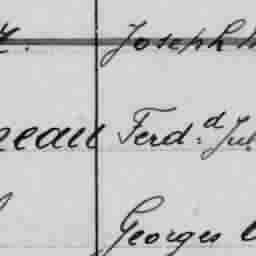 Joseph
neau Ferd.d Jul
Georges